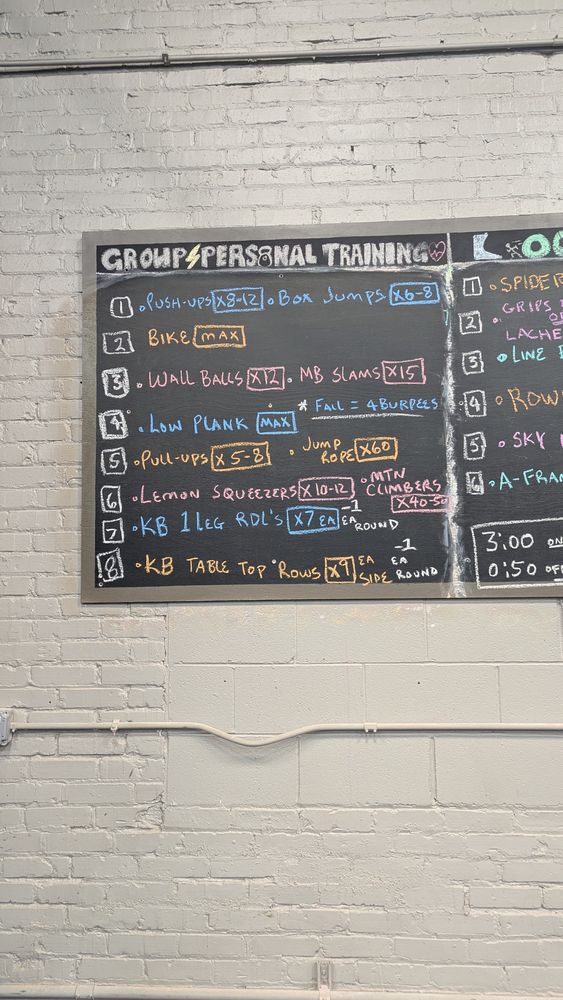 GROUP PERSONAL TRAINING
1 • PUSH-UPS X8-12 • BOX JUMPS X6-8
2 BIKE MAX
3 • WALL BALLS X12 • MB SLAMS X15
* FALL = 4 BURPEES
4 • LOW PLANK MAX
5 • PULL-UPS X 5-8 • JUMP ROPE X60
6 • LEMON SQUEEZERS X 10-12 • MTN CLIMBERS X40-50
7 • KB 1 LEG RDL'S X7 EA -1 EA ROUND
8 • KB TABLE TOP ROWS X9 EA SIDE -1 EA ROUND
1 • SPIDER
2 • GRIPS
LACHE
3 • LINE
4 • ROW
5 • SKY
6 • A-FRA
3:00 ON
0:50 OFF